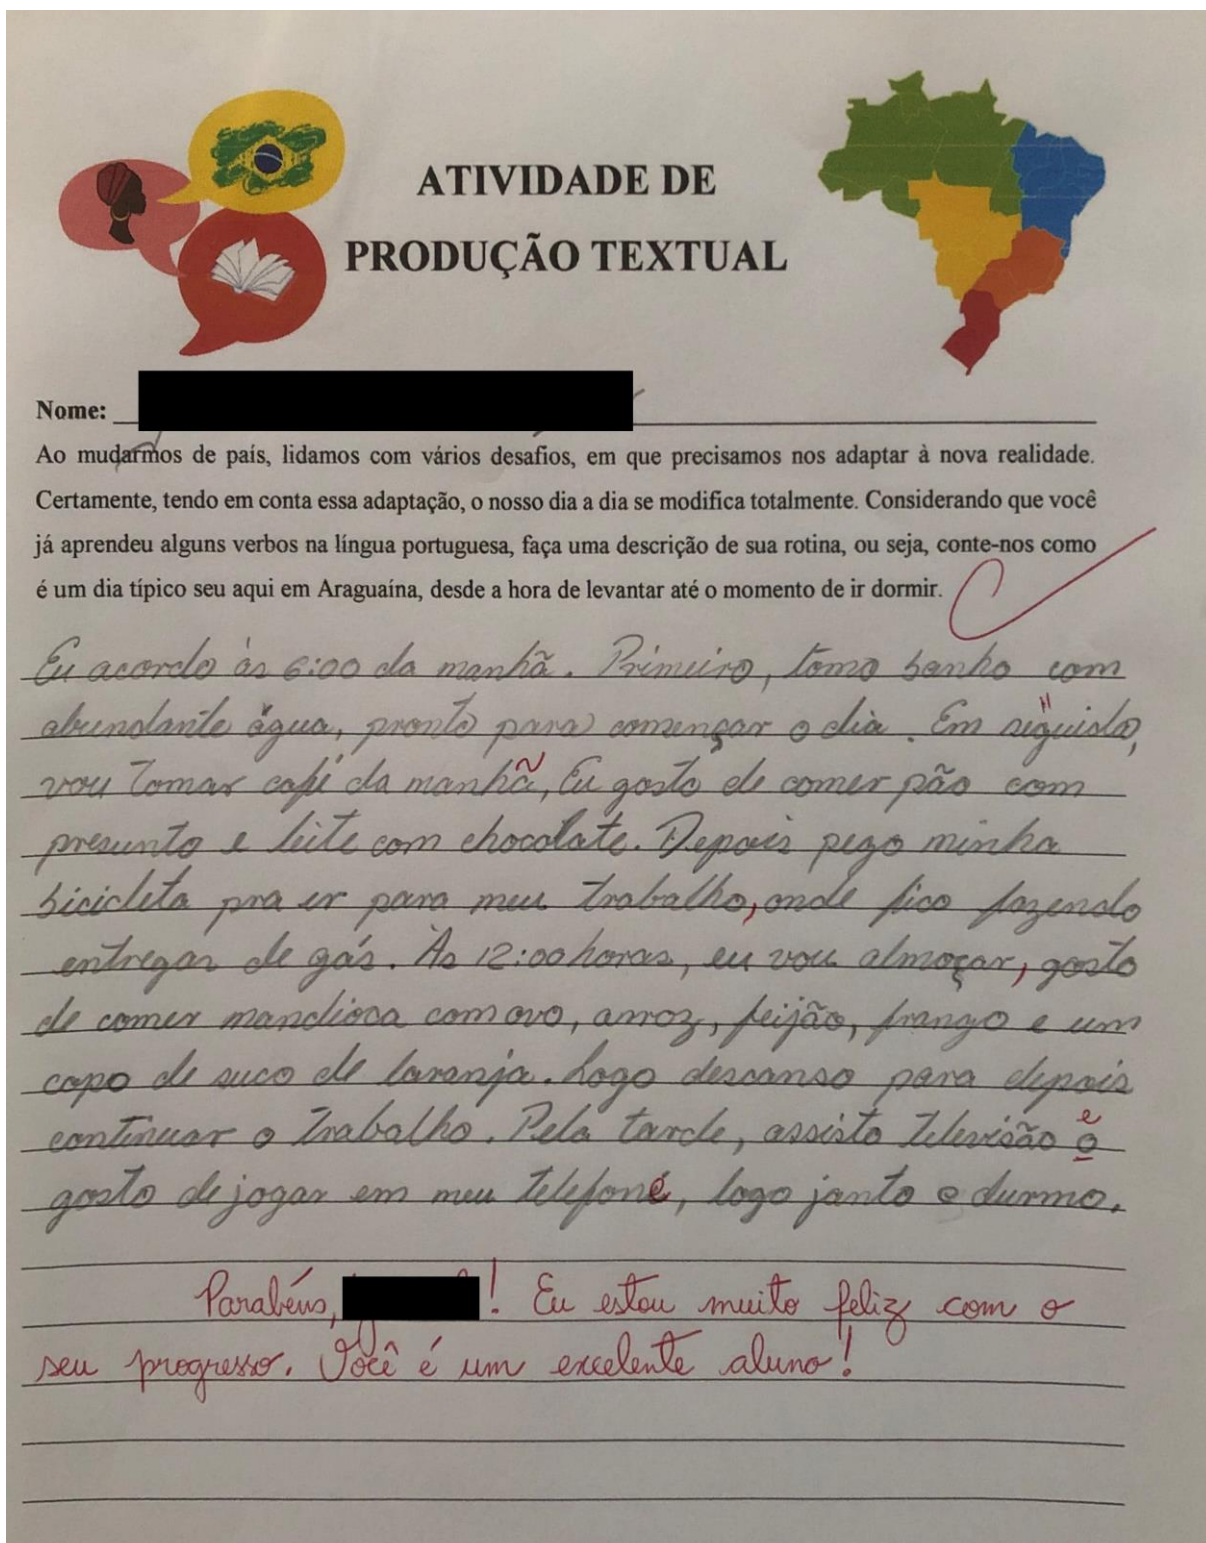 ATIVIDADE DE
PRODUÇÃO TEXTUAL
Nome:
Ao mudarmos de país, lidamos com vários desafios, em que precisamos nos adaptar à nova realidade.
Certamente, tendo em conta essa adaptação, o nosso dia a dia se modifica totalmente. Considerando que você
já aprendeu alguns verbos na língua portuguesa, faça uma descrição de sua rotina, ou seja, conte-nos como
é um dia típico seu aqui em Araguaína, desde a hora de levantar até o momento de ir dormir.
Eu acordo às 6:00 da manhã. Primeiro, tomo banho com
abundante água, pronto para començar o dia. Em siguida,
vou tomar café da manhã, Eu gosto de comer pão com
presunto e leite com chocolate. Depois pego minha
bicicleta pra ir para meu trabalho, onde fico fazendo
entregar de gás. Às 12:00 horas, eu vou almoçar, gosto
de comer mandioca com ovo, arroz, feijão, frango e um
copo de suco de laranja. Logo descanso para depois
continuar o trabalho. Pela tarde, assisto televisão o
e
gosto de jogar em meu telefone, logo janto e durmo.
Parabéns, ! Eu estou muito feliz com o
seu progresso. Você é um excelente aluno!